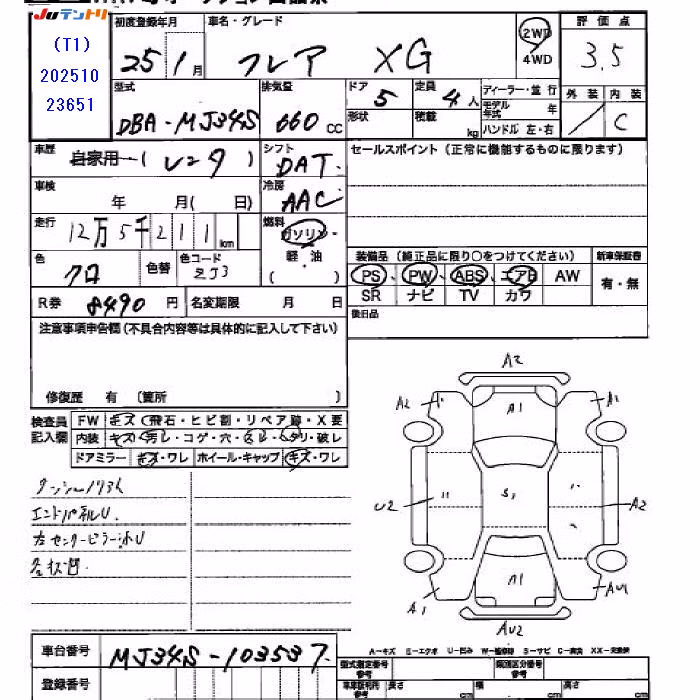 Juテントリ
(T1)
202510
23651
初度登録年月 車名・グレード 評価点
25 1月 フレア XG 2WD 4WD 3.5
型式 排気量 ドア 定員 ディーラー・並行 外装 内装
DBA-MJ34S 660cc 5 4人 モデル年式 年 C
形状 積載 kg ハンドル 左・右
車歴 自家用 シフト セールスポイント(正常に機能するものに限ります)
DAT
車検 年 月( 日) 冷房 AAC
走行 12万5千211km 燃料 ガソリン・軽油 ( )
装備品(純正品に限り○をつけてください) 新車保証書
色 クロ 色替 色コード ZJ3
PS、PW、ABS、エアB AW 有・無
SR ナビ TV カワ
R券 8490円 名変期限 月 日
後日品
注意事項申告欄(不具合内容等は具体的に記入して下さい)
修復歴 有〔箇所 〕
検査員記入欄 FW キズ(飛石・ヒビ割・リペア跡・X要
内装 キズ・汚レ・コゲ・穴・スレ・タリ・破レ
ドアミラー キズ・ワレ ホイール・キャップ キズ・ワレ
エンドパネルU.
左センターピラー小U
A2
A2 A1 A1
U2 S1 A2
A1 A1 AU1
AU2
A-キズ E-エクボ U-凹み W-補修跡 S-サビ C-腐食 XX-交換済
車台番号 MJ34S-103537.
登録番号
型式指定番号 参考 類別区分番号 参考
長さ cm 幅 cm 高さ cm